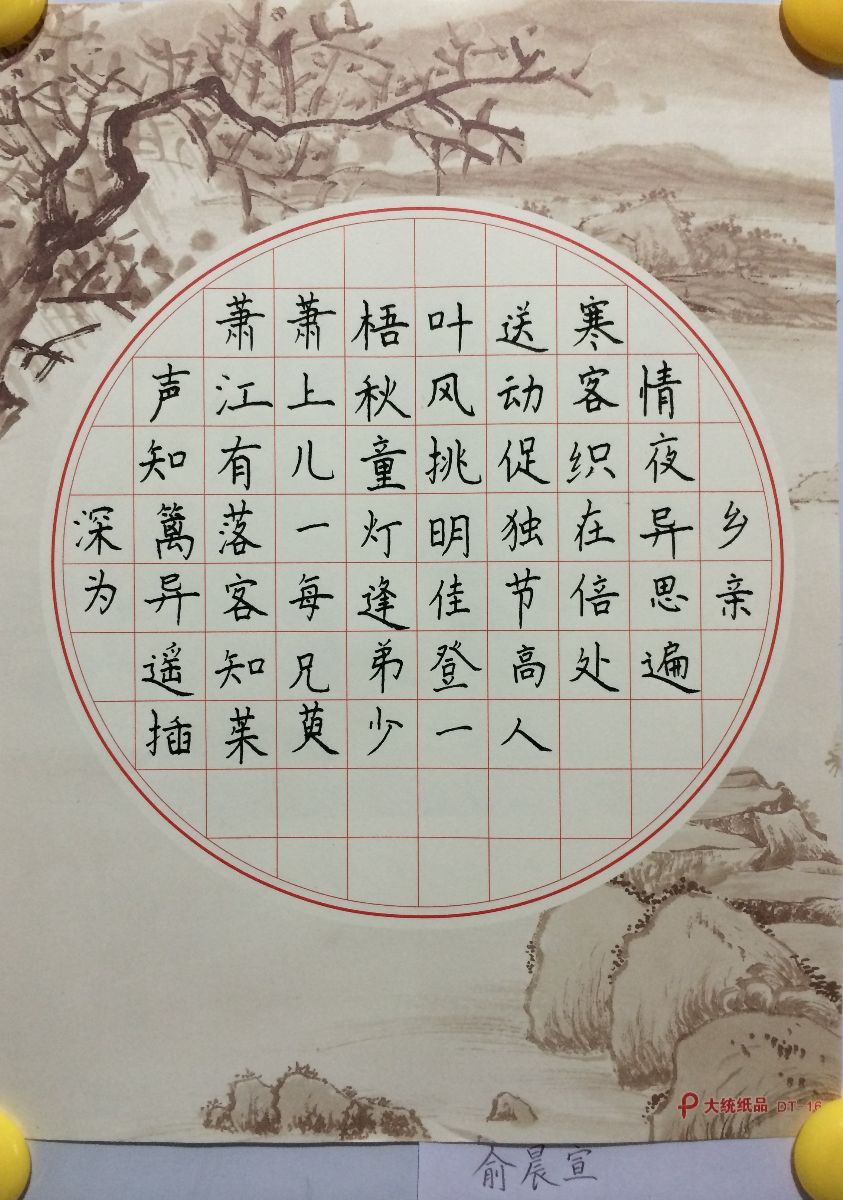 萧萧梧叶送寒
声江上秋风动客情
知有儿童挑促织夜
深篱落一灯明独在异乡
为异客每逢佳节倍思亲
遥知兄弟登高处遍
插茱萸少一人
大统纸品 DT-16
俞晨宣